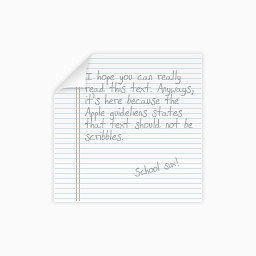 I hope you can really
read this text. Anyways,
it's here because the
Apple guideliens states
that text should not be
scribbles.
School sux!